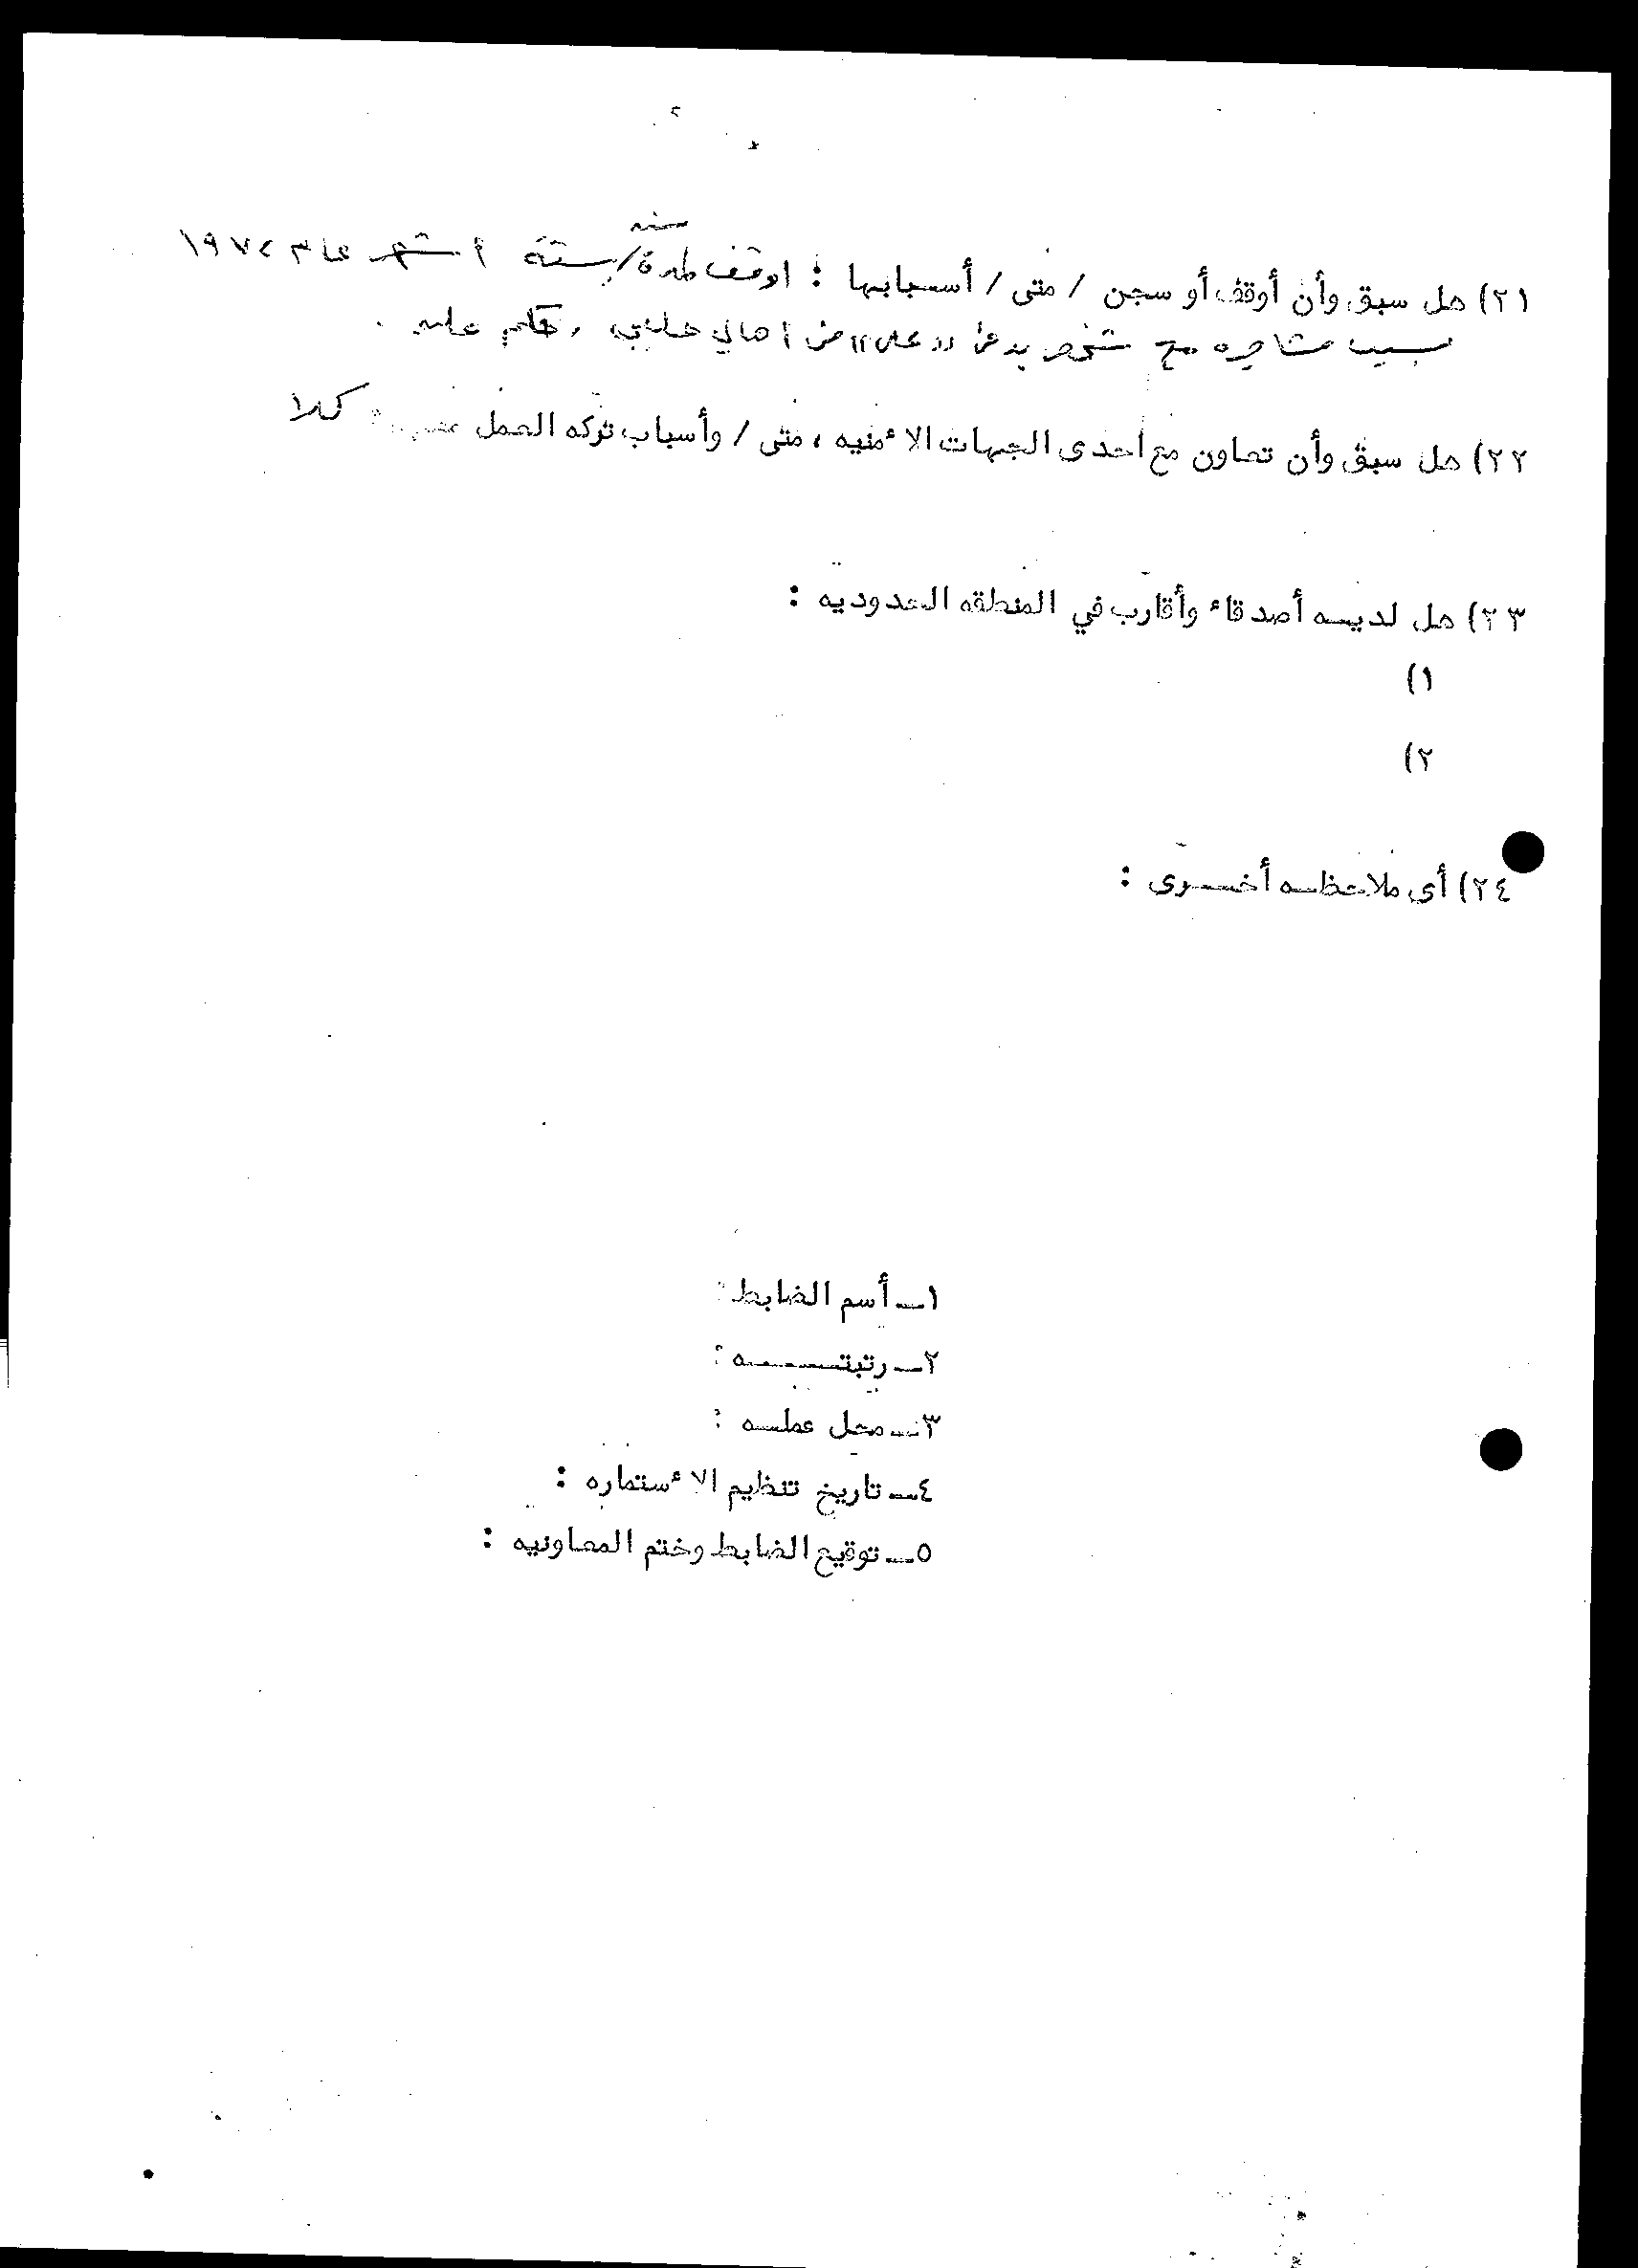 ٢
سنه
٢١) هل سبق وأن أوقف أو سجن / متى / أسبابها : اوقف لمدة / ستة أشهر عام ١٩٧٤
بسبب مشاجره مع شخص يدعى ((علي)) من اهالي وحكم عليه .
٢٢) هل سبق وأن تعاون مع احدى الجهات الاٴمنيه ، متى / وأسباب تركه العمل كلا
٢٣) هل لديـه أصدقاء وأقارب في المنطقه الحدوديه :
١)
٢)
٢٤) أى ملاحظـه أخـرى :
١ـ أسم الضابط :
٢ـ رتبتــــه :
٣ـ محل عملـه :
٤ـ تاريخ تنظيم الاٴستماره :
٥ـ توقيع الضابط وختم المعاونيه :